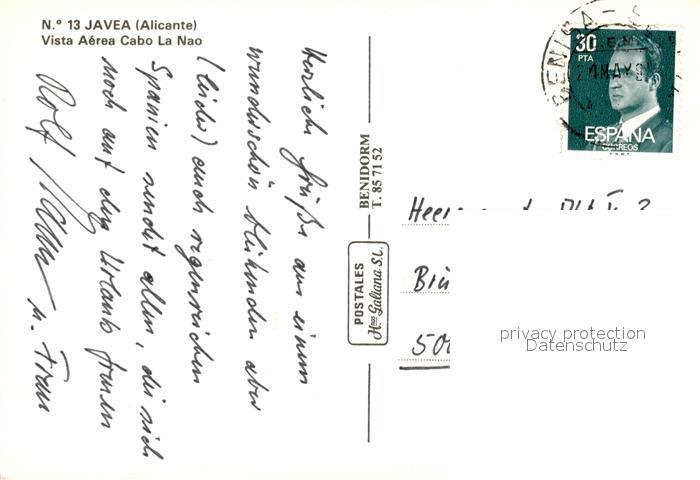 N.º 13 JAVEA (Alicante)
Vista Aérea Cabo La Nao
Herzliche Grüße aus einem
wunderschön blühenden aber
(leider) auch regenreichen
Spanien sendet allen, die sich
noch auf den Urlaub freuen
Rolf u. Frau
BENIDORM
T. 85 71 52
POSTALES
Hnos Galiana S.L.
30
PTA
BENISA
MAY
ESPAÑA
CORREOS
Heer
Brü
500
privacy protection
Datenschutz